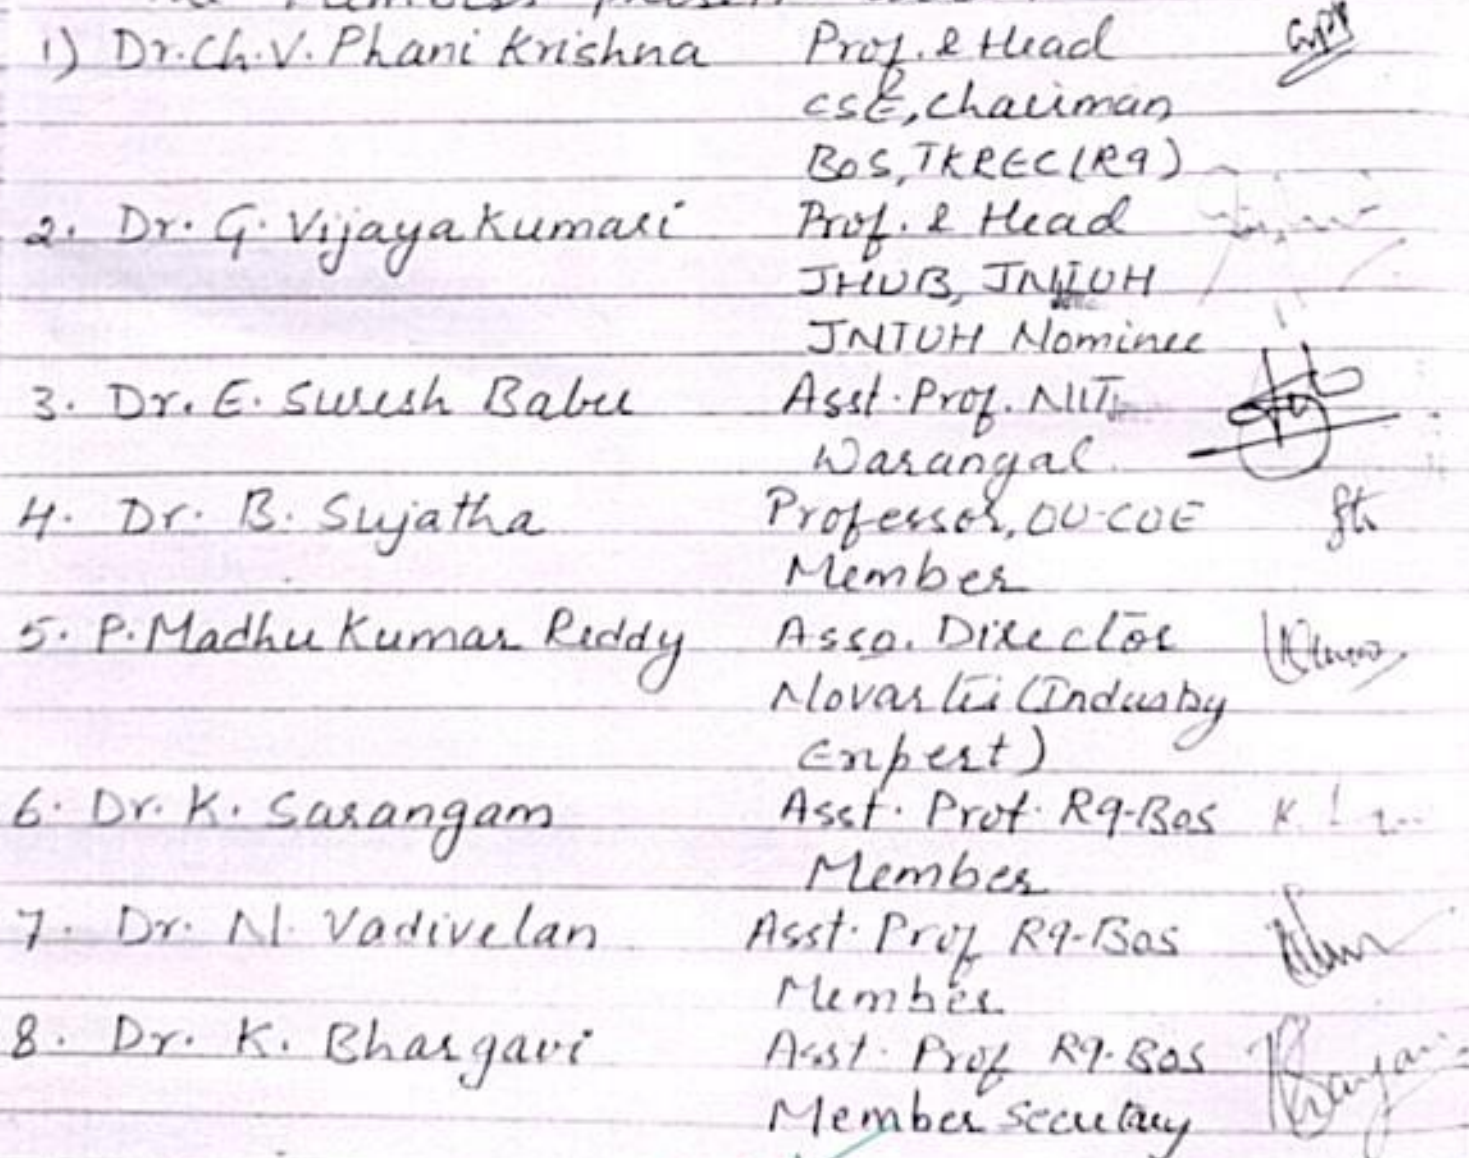 1) Dr.Ch.V. Phani Krishna Prof. & Head
CSE, Chairman
BOS, TKREC (R9)
2. Dr. G. Vijaya Kumari Prof. & Head
JHUB, JNTUH
JNTUH Nominee
3. Dr. E. Suresh Babu Asst. Prof. NIT,
Warangal.
4. Dr. B. Sujatha Professor, OU-COE
Member
5. P. Madhu Kumar Reddy Asso. Director
Novartis (Industry
Expert)
6. Dr. K. Sarangam Asst. Prof. R9-Bos
Member
7. Dr. N. Vadivelan Asst. Prof R9-Bos
Member
8. Dr. K. Bhargavi Asst. Prof R9-Bos
Member Secretary